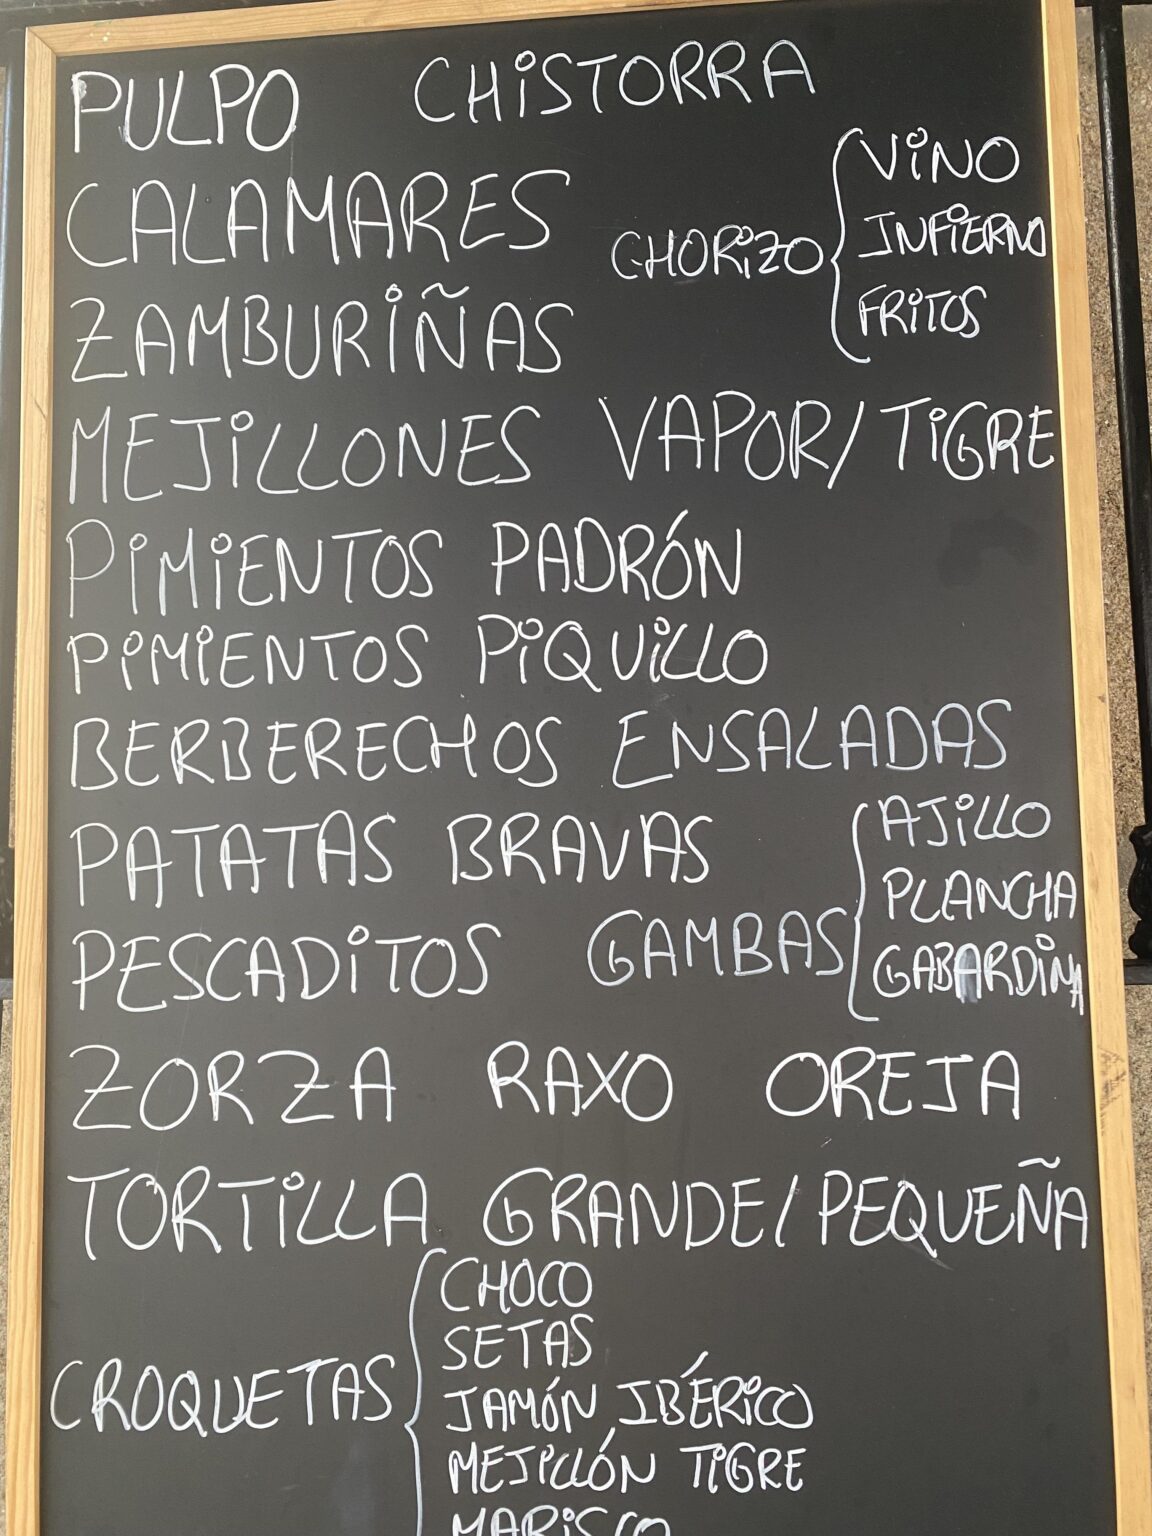 PULPO CHISTORRA
CALAMARES
CHORIZO
VINO
INFIERNO
FRITOS
ZAMBURIÑAS
MEJILLONES VAPOR/TIGRE
PIMIENTOS PADRÓN
PIMIENTOS PIQUILLO
BERBERECHOS ENSALADAS
PATATAS BRAVAS
PESCADITOS GAMBAS
AJILLO
PLANCHA
GABARDINA
ZORZA RAXO OREJA
TORTILLA GRANDE/PEQUEÑA
CROQUETAS
CHOCO
SETAS
JAMÓN IBÉRICO
MEJILLÓN TIGRE
MARISCO